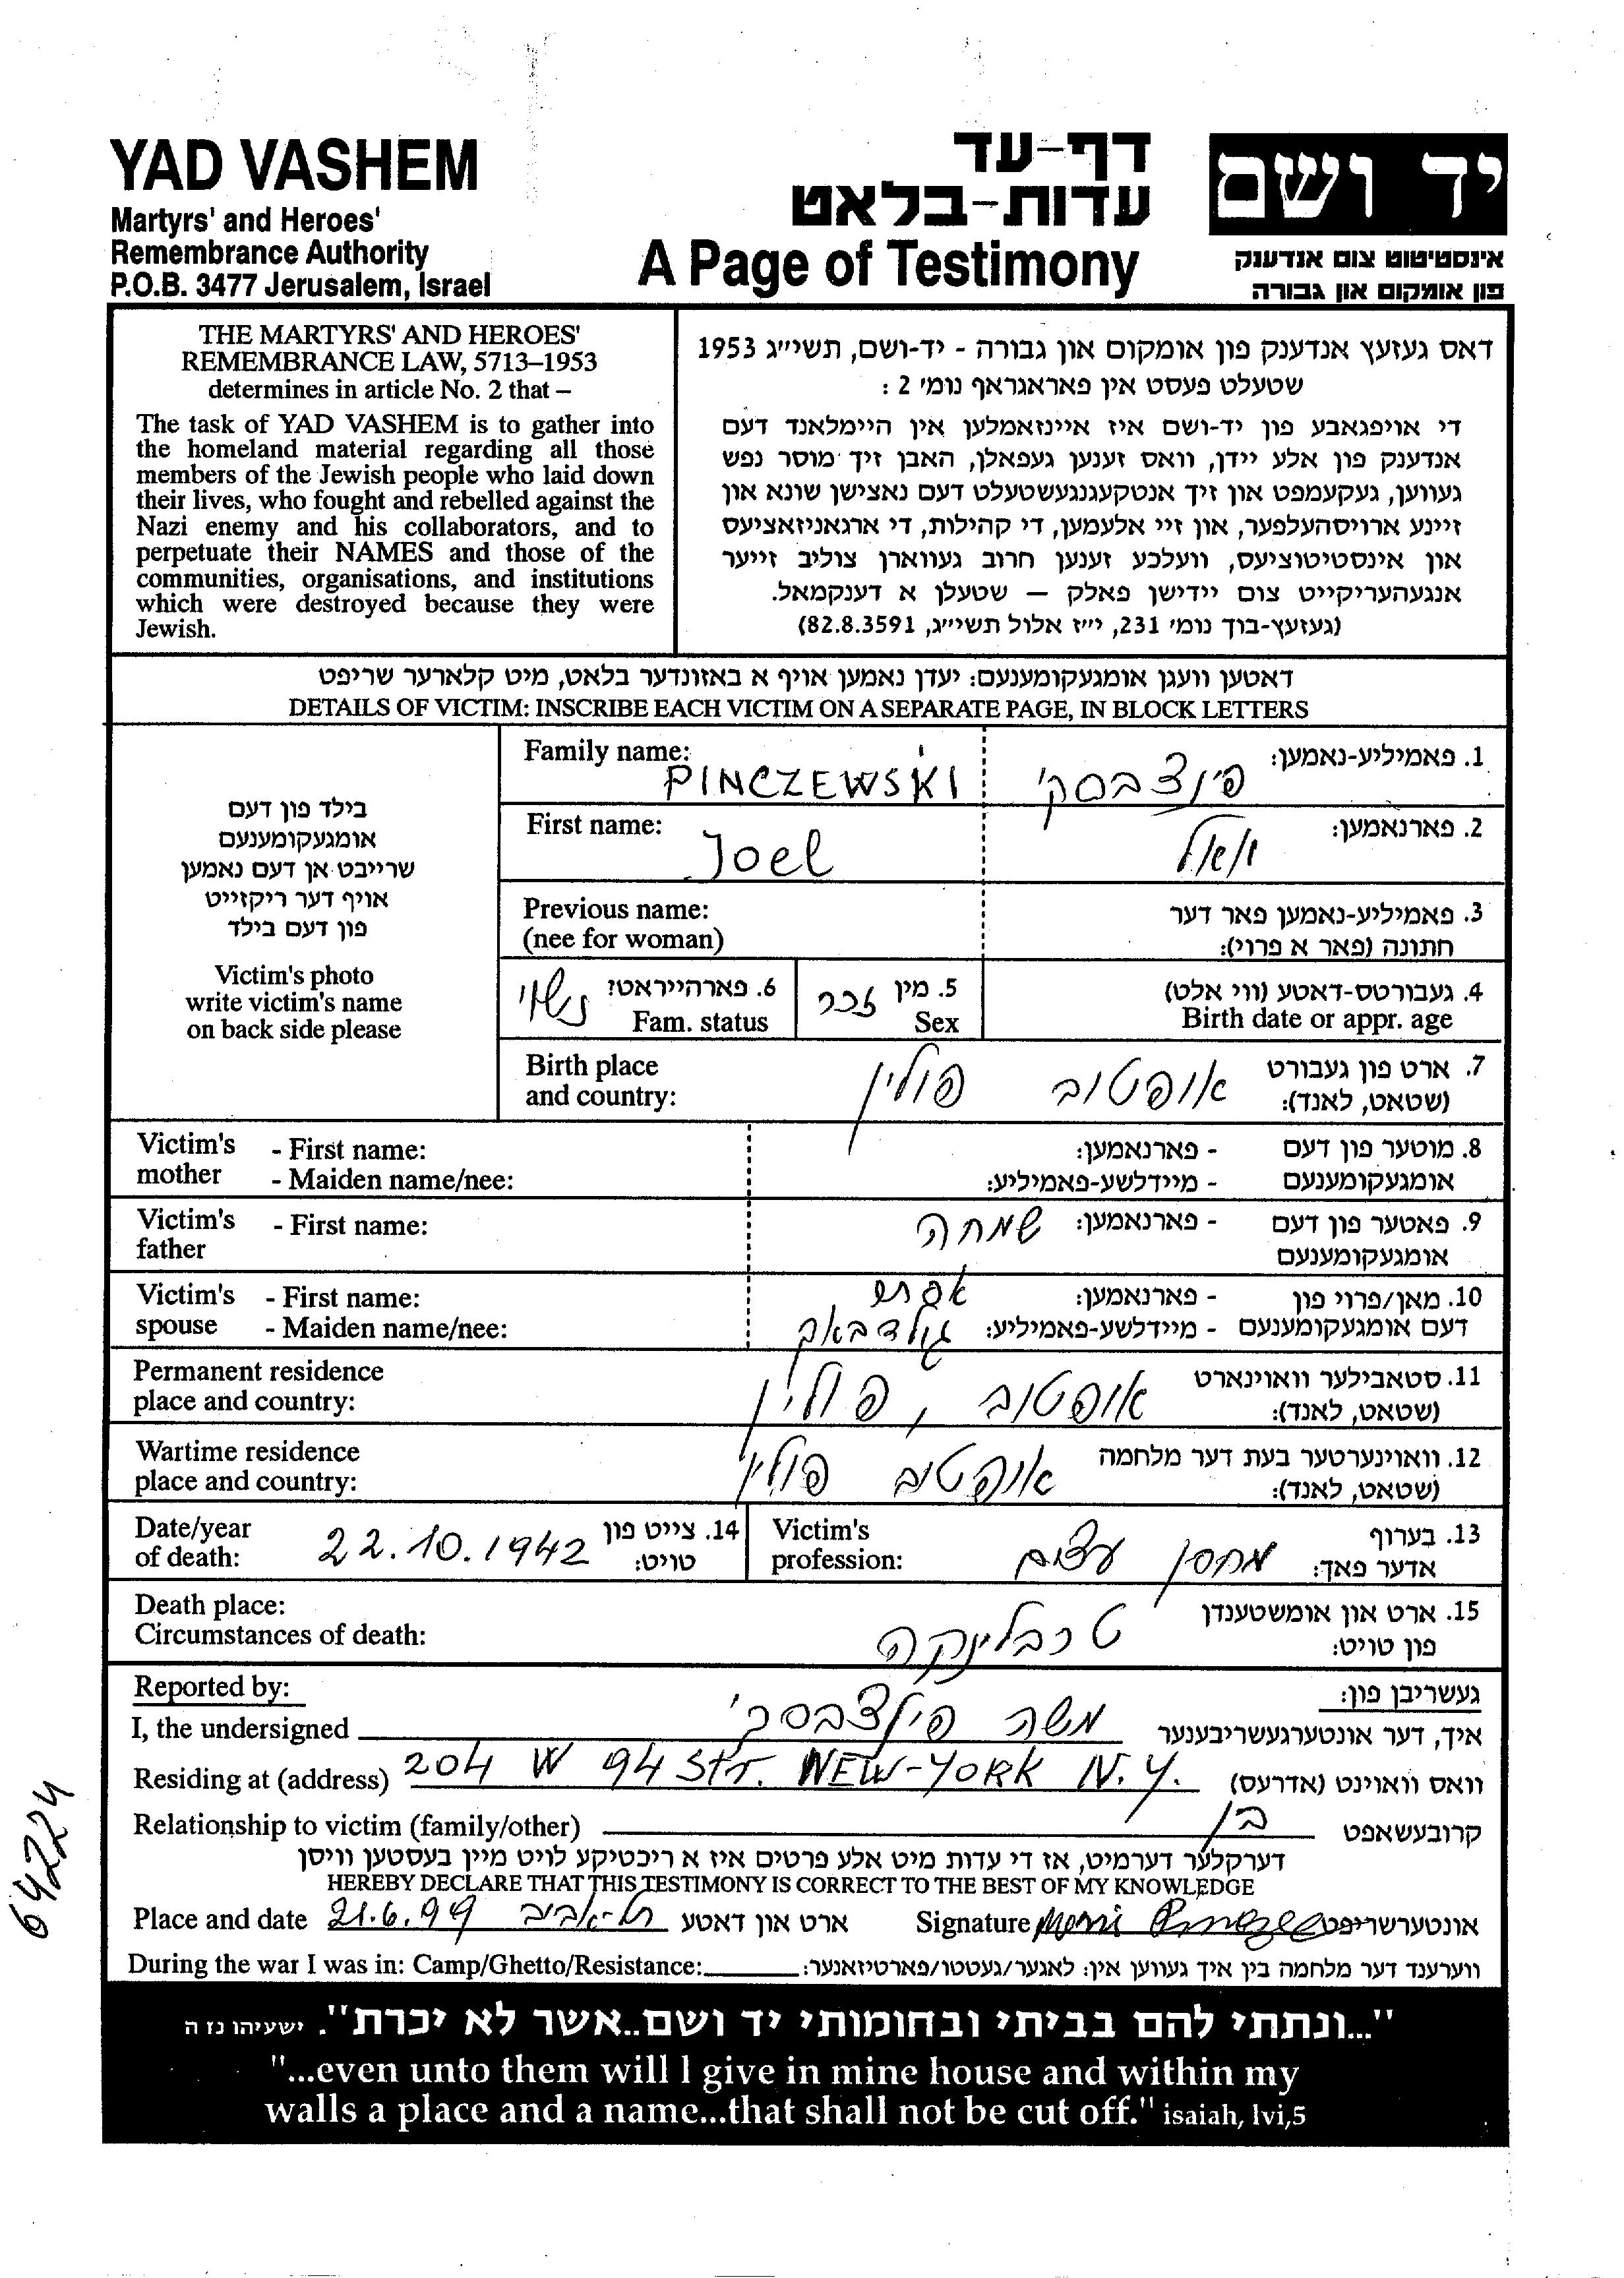 YAD VASHEM
Martyrs' and Heroes'
Remembrance Authority
P.O.B. 3477 Jerusalem, Israel
דף-עד
עדות-בלאט
A Page of Testimony
יד ושם
אינסטיטוט צום אנדענק
פון אומקום און גבורה
THE MARTYRS' AND HEROES'
REMEMBRANCE LAW, 5713–1953
determines in article No. 2 that –
The task of YAD VASHEM is to gather into
the homeland material regarding all those
members of the Jewish people who laid down
their lives, who fought and rebelled against the
Nazi enemy and his collaborators, and to
perpetuate their NAMES and those of the
communities, organisations, and institutions
which were destroyed because they were
Jewish.
דאס געזעץ אנדענק פון אומקום און גבורה - יד-ושם, תשי״ג 1953
שטעלט פעסט אין פאראגראף נומ׳ 2 :
די אויפגאבע פון יד-ושם איז איינזאמלען אין היימלאנד דעם
אנדענק פון אלע יידן, וואס זענען געפאלן, האבן זיך מוסר נפש
געווען, געקעמפט און זיך אנטקעגנגעשטעלט דעם נאצישן שונא און
זיינע ארויסהעלפער, און זיי אלעמען, די קהילות, די ארגאניזאציעס
און אינסטיטוציעס, וועלכע זענען חרוב געווארן צוליב זייער
אנגעהעריקייט צום יידישן פאלק — שטעלן א דענקמאל.
(געזעץ-בוך נומ׳ 231, י״ז אלול תשי״ג, 82.8.3591)
דאטען וועגן אומגעקומענעם: יעדן נאמען אויף א באזונדער בלאט, מיט קלארער שריפט
DETAILS OF VICTIM: INSCRIBE EACH VICTIM ON A SEPARATE PAGE, IN BLOCK LETTERS
בילד פון דעם
אומגעקומענעם
שרייבט אן דעם נאמען
אויף דער ריקזייט
פון דעם בילד
Victim's photo
write victim's name
on back side please
Family name: PINCZEWSKI פינצבסקי 1. פאמיליע-נאמען:
First name: Joel יואל 2. פארנאמען:
Previous name: 3. פאמיליע-נאמען פאר דער
(nee for woman) חתונה (פאר א פרוי):
נשוי 6. פארהייראט? זכר 5. מין 4. געבורטס-דאטע (ווי אלט)
Fam. status Sex Birth date or appr. age
Birth place פולין אופטוב 7. ארט פון געבורט
and country: (שטאט, לאנד):
Victim's - First name: - פארנאמען: 8. מוטער פון דעם
mother - Maiden name/nee: - מיידלשע-פאמיליע: אומגעקומענעם
Victim's - First name: שמחה - פארנאמען: 9. פאטער פון דעם
father אומגעקומענעם
Victim's - First name: אסתר - פארנאמען: 10. מאן/פרוי פון
spouse - Maiden name/nee: גולדבאך - מיידלשע-פאמיליע: דעם אומגעקומענעם
Permanent residence אופטוב, פולין 11. סטאבילער וואוינארט
place and country: (שטאט, לאנד):
Wartime residence אופטוב פולין 12. וואוינערטער בעת דער מלחמה
place and country: (שטאט, לאנד):
Date/year 22.10.1942 14. צייט פון Victim's מחסן עצים 13. בערוף
of death: טויט: profession: אדער פאך:
Death place: טרבלינקה 15. ארט און אומשטענדן
Circumstances of death: פון טויט:
Reported by: געשריבן פון:
I, the undersigned משה פינצבסקי איך, דער אונטערגעשריבענער
Residing at (address) 204 W 94 Str. NEW-YORK N.Y. וואס וואוינט (אדרעס)
Relationship to victim (family/other) בן קרובעשאפט
דערקלער דערמיט, אז די עדות מיט אלע פרטים איז א ריכטיקע לויט מיין בעסטען וויסן
HEREBY DECLARE THAT THIS TESTIMONY IS CORRECT TO THE BEST OF MY KNOWLEDGE
Place and date 21.6.99 תל-אביב ארט און דאטע Signature אונטערשריפט
During the war I was in: Camp/Ghetto/Resistance: ווערענד דער מלחמה בין איך געווען אין: לאגער/געטטו/פארטיזאנער:
64224
"...ונתתי להם בביתי ובחומותי יד ושם..אשר לא יכרת". ישעיהו נז ה
"...even unto them will I give in mine house and within my
walls a place and a name...that shall not be cut off." isaiah, lvi,5